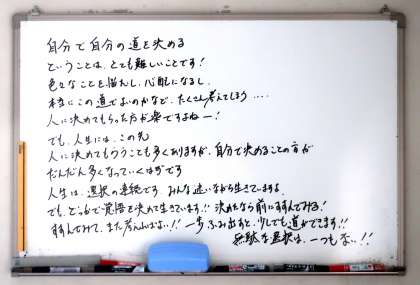 自分で自分の道を決める
ということは、とても難しいことです!
色々なことを悩むし、心配になるし、
本当にこの道でよいのかなど、たくさん考えてしまう....
人に決めてもらった方が楽ですよねー!
でも、人生には、この先
人に決めてもらうことも多くありますが、自分で決めることの方が
だんだん多くなっていくはずです
人生は、選択の連続です。みんな迷いながら生きていますよ
でも、どこかで覚悟を決めて生きています!! 決めたなら前にすすんでみる!
すすんでみて、また考えればよい!! 一歩ふみ出すと、少しでも道ができます!!
無駄な選択は、一つもない!!